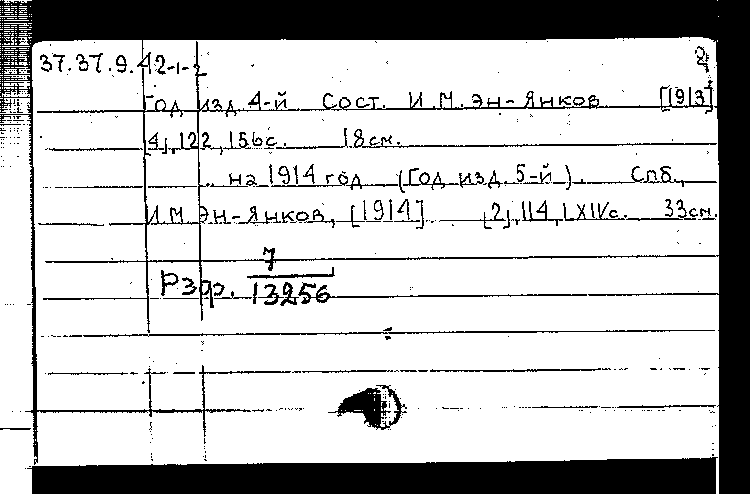 37.37.9.42-1-2 2
Год изд. 4-й Сост. И.М. Эн-Янков [1913]
[4], 122, 156с. 18см.
.. на 1914 год (Год изд. 5-й). Спб.,
И.М. Эн-Янков, [1914] [2], 114, LXIVс. 33см.
7
13256